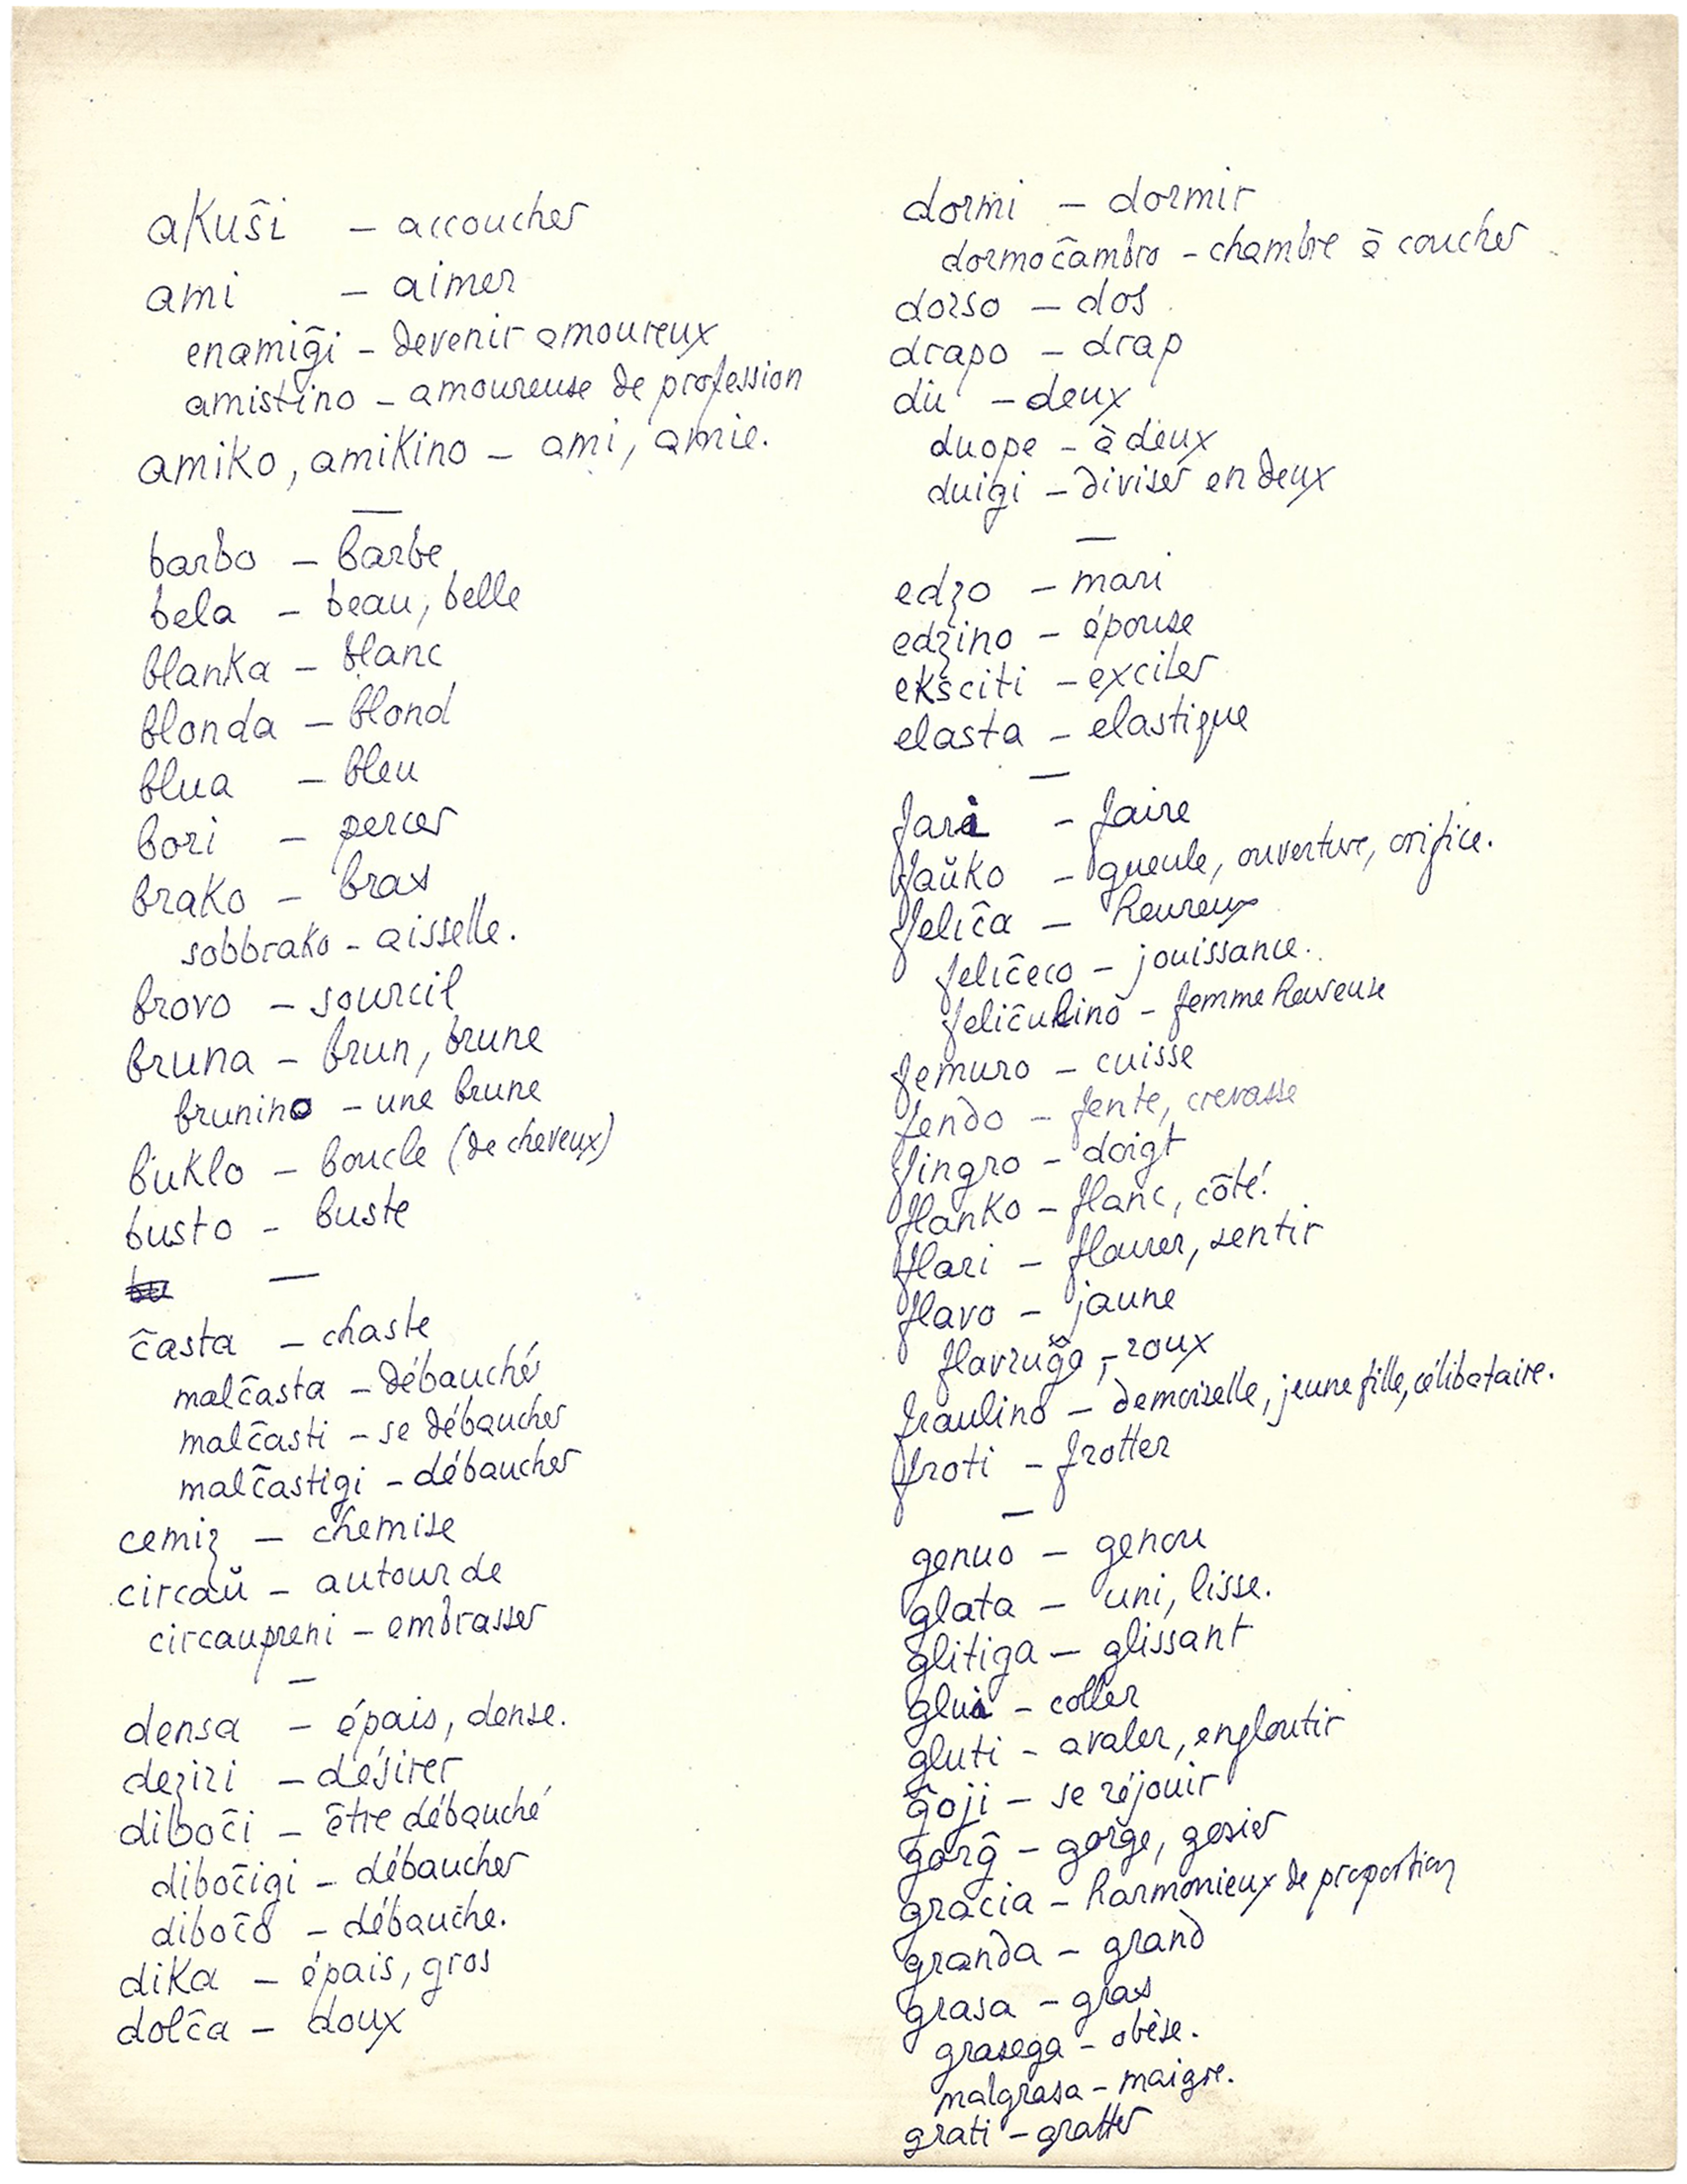 akuŝi – accoucher
ami – aimer
enamiĝi – devenir amoureux
amistino – amoureuse de profession
amiko, amikino – ami, amie.
—
barbo – barbe
bela – beau, belle
blanka – blanc
blonda – blond
blua – bleu
bori – percer
brako – bras
sobbrako – aisselle.
brovo – sourcil
bruna – brun, brune
brunino – une brune
buklo – boucle (de cheveux)
busto – buste
—
ĉasta – chaste
malĉasta – débauché
malĉasti – se débaucher
malĉastigi – débaucher
cemiz – chemise
circaŭ – autour de
circaupreni – embrasser
—
densa – épais, dense.
deziri – désirer
diboĉi – être débauché
diboĉigi – débaucher
diboĉo – débauche.
dika – épais, gros
dolĉa – doux
dormi – dormir
dormoĉambro – chambre à coucher
dorso – dos
drapo – drap
du – deux
duope – à deux
duigi – diviser en deux
—
edzo – mari
edzino – épouse
eksciti – exciter
elasta – elastique
—
fari – faire
faŭko – gueule, ouverture, orifice.
feliĉa – heureux
feliĉeco – jouissance.
feliĉulino – femme heureuse
femuro – cuisse
fendo – fente, crevasse
fingro – doigt
flanko – flanc, côté.
flari – flairer, sentir
flavo – jaune
flavruĝo – roux
fraulino – demoiselle, jeune fille, célibataire.
froti – frotter
—
genuo – genou
glata – uni, lisse.
glitiga – glissant
glui – coller
gluti – avaler, engloutir
ĝoji – se réjouir
gorĝ – gorge, gosier
gracia – harmonieux de proportion
granda – grand
grasa – gras
grasega – obèse.
malgrasa – maigre.
grati – gratter